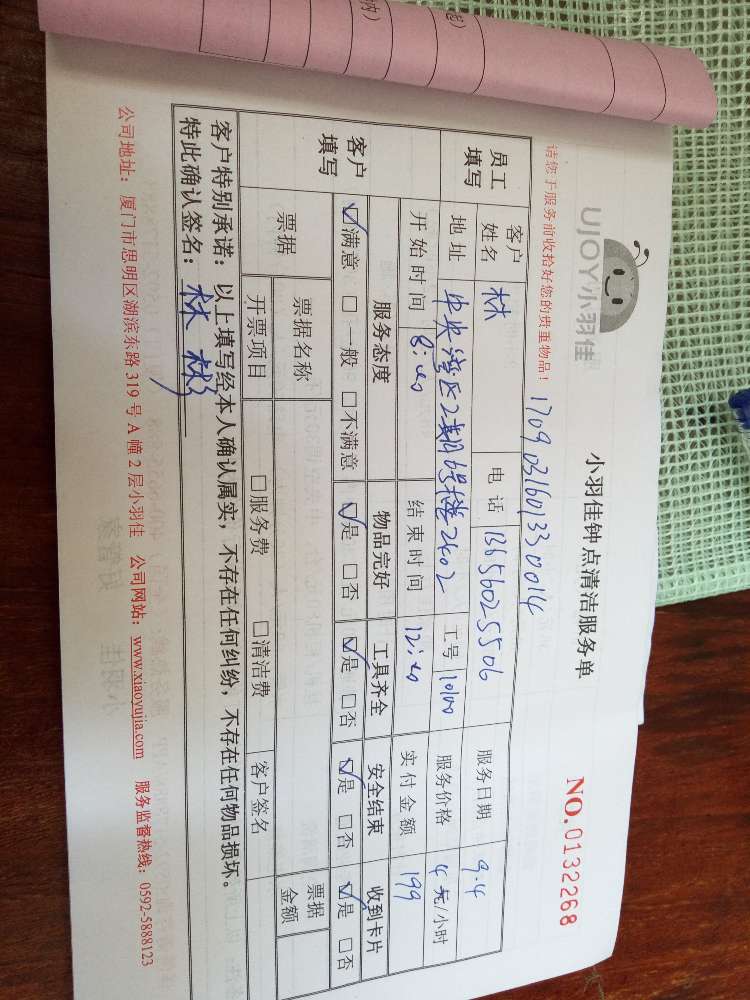 起）
内）
UJOY小羽佳
小羽佳钟点清洁服务单
NO.0132268
请您于服务前收拾好您的贵重物品！
17090316013330014
员工填写
客户姓名 林 电话 13656025506 服务日期 9.4
地址 中央湾区2期6号楼2402 工号 10100 服务价格 4 元/小时
开始时间 8:00 结束时间 12:00 实付金额 199
客户填写
服务态度 物品完好 工具齐全 安全结束 收到卡片
☑满意 □一般 □不满意 ☑是 □否 ☑是 □否 ☑是 □否 ☑是 □否
票据 票据名称 票据金额
开票项目 □服务费 □清洁费 客户签名
客户特别承诺：以上填写经本人确认属实，不存在任何纠纷，不存在任何物品损坏。
特此确认签名：林彬
公司地址：厦门市思明区湖滨东路319号A幢2层小羽佳 公司网站：www.xiaoyujia.com 服务监督热线：0592-5888123